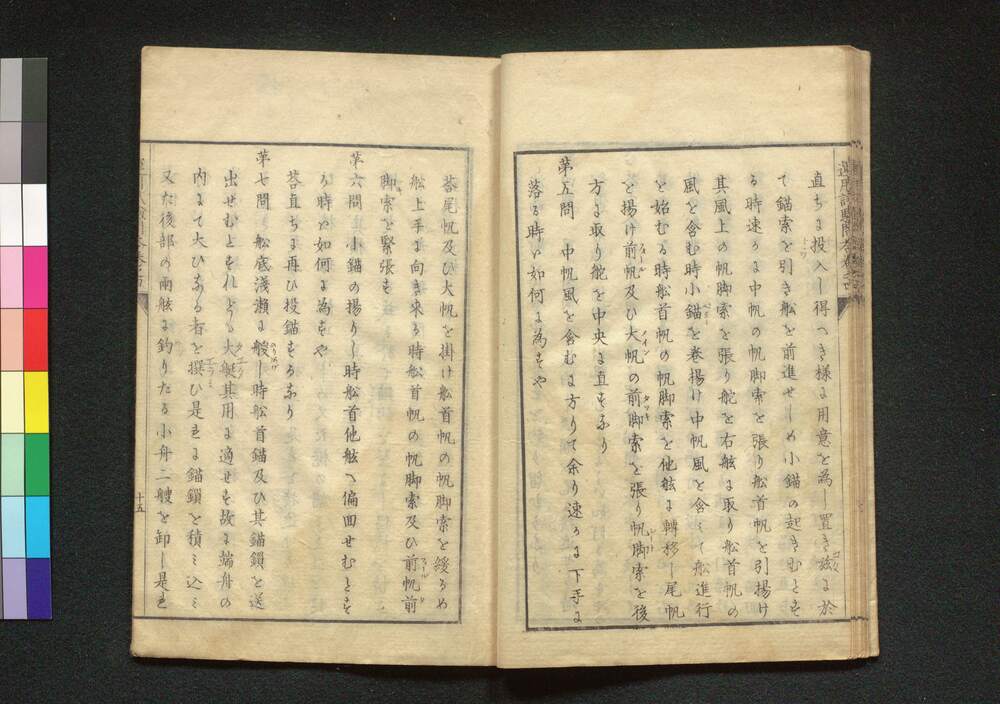 直ちに投入し得へき様に用意を為し置き玆に於
て錨索を引き舩を前進せしめ小錨の起きむとす
る時速かに中帆の帆脚索を張り舩首帆を引揚け
其風上の帆脚索を張り舵を右舷に取り舩首帆の
風を含む時小錨を巻揚け中帆風を含みて舩進行
を始むる時舩首帆の帆脚索を他舷に轉移し尾帆
を揚け前帆及ひ大帆の前脚索を張り帆脚索を後
方に取り舵を中央に直すなり
第五問 中帆風を含むに方りて余り速かに下手に
落る時ハ如何に為すや
答尾帆及ひ大帆を掛け舩首帆の帆脚索を緩るめ
舩上手に向き来る時舩首帆の帆脚索及ひ前帆前
脚索を緊張す
第六問 小錨の揚りし時舩首他舷へ偏回せむとす
る時ハ如何に為すや
答直ちに再ひ投錨するなり
第七問 舩底淺瀬に艐し時舩首錨及ひ其錨鎖を送
出せむとすれども大艇其用に適せす故に端舟の
内にて大ひなる者を撰ひ是れに錨鎖を積み込み
又た後部の兩舷に釣りたる小舟二艘を卸し是れ
十五